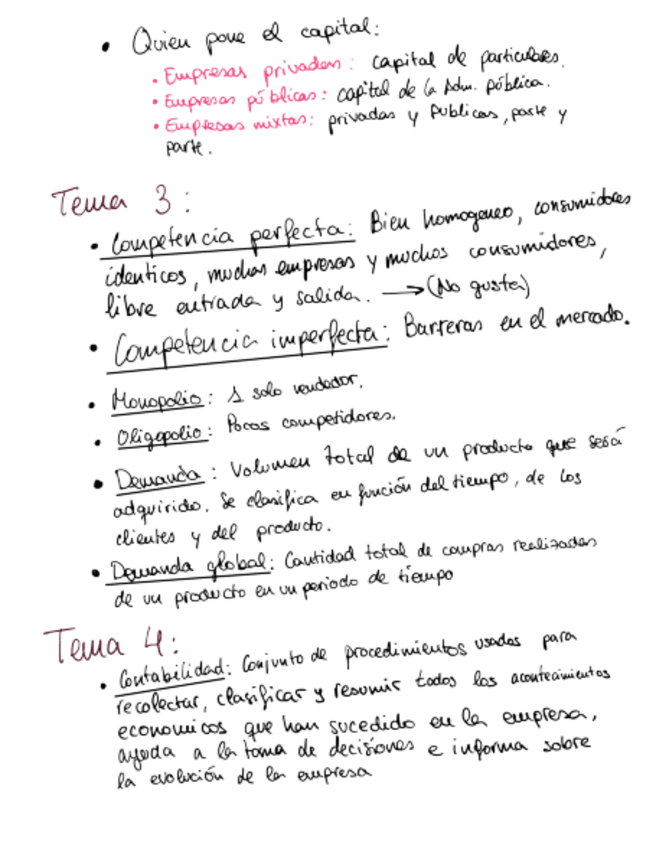 • Quien pone el capital:
• Empresas privadas: capital de particulares.
• Empresas públicas: capital de la Adm. pública.
• Empresas mixtas: privadas y publicas, parte y
parte.
Tema 3:
• Competencia perfecta: Bien homogeneo, consumidores
identicos, muchas empresas y muchos consumidores,
libre entrada y salida. → (No gusta)
• Competencia imperfecta: Barreras en el mercado.
• Monopolio: 1 solo vendedor.
• Oligopolio: Pocos competidores.
• Demanda: Volumen total de un producto que será
adquirido. Se clasifica en función del tiempo, de los
clientes y del producto.
• Demanda global: Cantidad total de compras realizadas
de un producto en un periodo de tiempo
Tema 4:
• Contabilidad: Conjunto de procedimientos usados para
recolectar, clasificar y resumir todos los acontecimientos
economicos que han sucedido en la empresa,
ayuda a la toma de decisiones e informa sobre
la evolución de la empresa